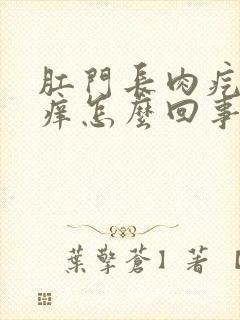 肛門長肉疙
癢怎麼回事
葉擎蒼】著【